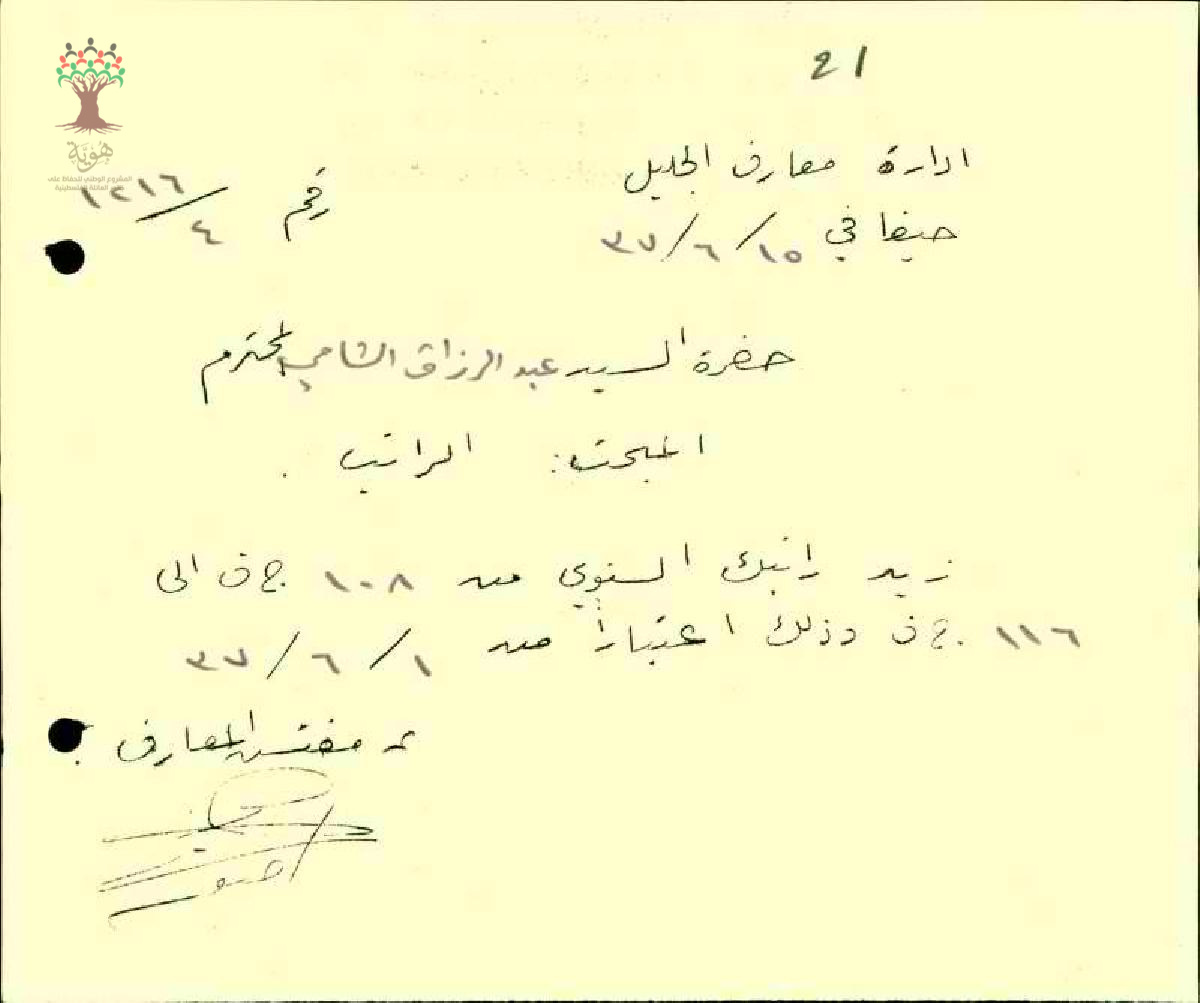 21
هوية
المشروع الوطني للحفاظ على
العائلة الفلسطينية
ادارة معارف الجليل
رقم ١٢١٦/٤
حيفا في ١٥/٦/٣٧
حضرة السيد عبد الرزاق الشامي المحترم
المبحث: الراتب .
زيد راتبك السنوي من ١٠٨ ج ف الى
١١٦ ج ف وذلك اعتباراً من ١/٦/٣٧
عن مفتش المعارف